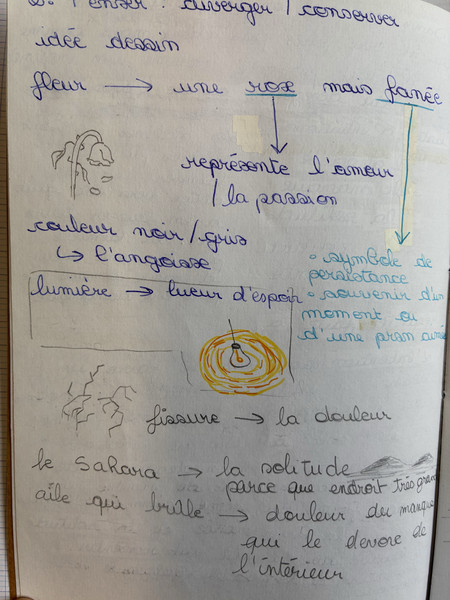 Penser : diverger / conserver
idée dessin
fleur → une rose mais fanée
représente l'amour
/ la passion
couleur noir/gris
↳ l'angoisse
• symbole de
persistance
lumière → lueur d'espoir
• souvenir d'un
moment ou
d'une
fissure → la douleur
le Sahara → la solitude
parce que endroit très grand
aile qui brûle → douleur du manque
qui le dévore de
l'intérieur